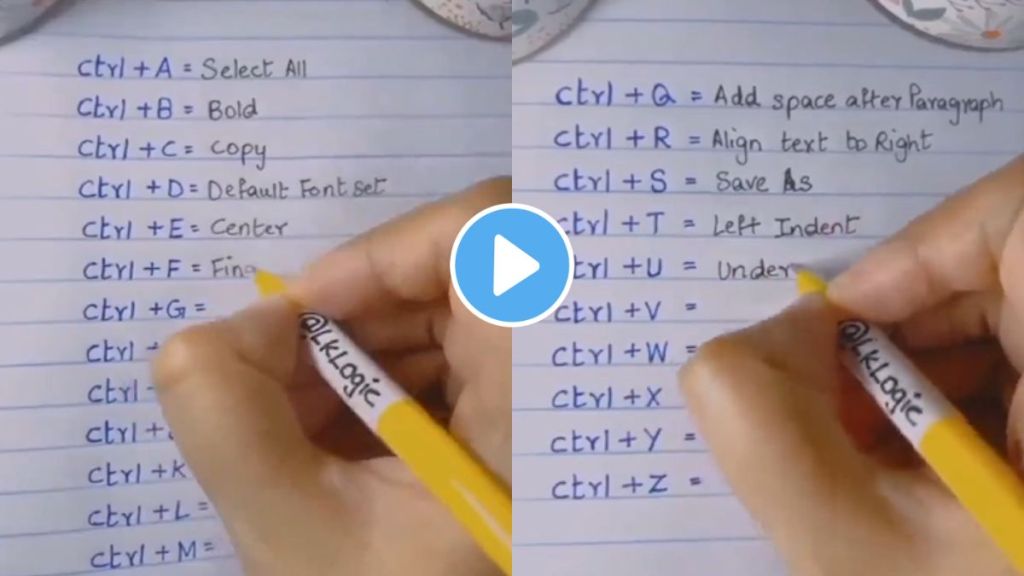 ctrl + A = Select All
ctrl + B = Bold
ctrl + C = Copy
ctrl + D = Default Font set
ctrl + E = Center
ctrl + F = Fin
ctrl + G =
ctrl
ctrl
ctrl +
ctrl + K
ctrl + L =
ctrl + M =
@LKLogic
ctrl + Q = Add space after Paragraph
ctrl + R = Align text to Right
ctrl + S = Save As
ctrl + T = Left Indent
ctrl + U = Under
ctrl + V =
ctrl + W =
ctrl + X
ctrl + Y =
ctrl + Z =
@LKLogic